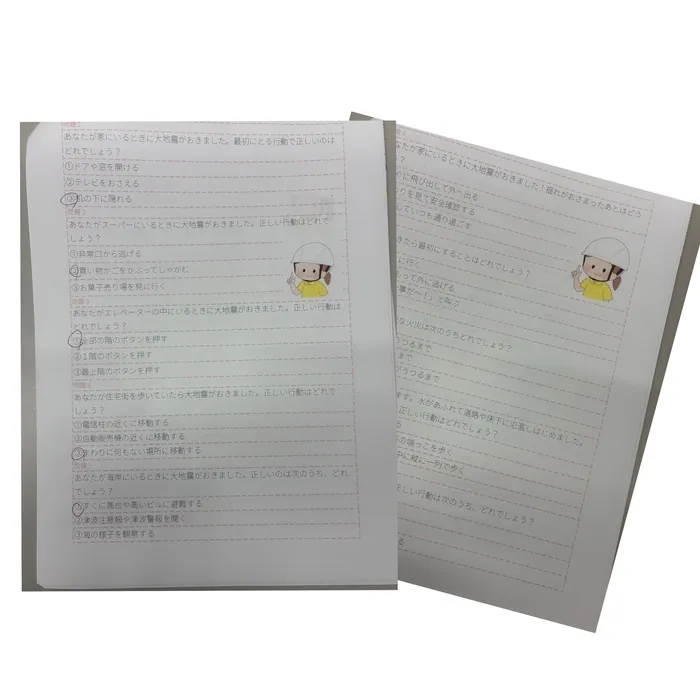 問題1
あなたが家にいるときに大地震がおきました。最初にとる行動で正しいのは
どれでしょう？
①ドアや窓を開ける
②テレビをおさえる
③机の下に隠れる
問題2
あなたがスーパーにいるときに大地震がおきました。正しい行動はどれで
しょう？
①非常口から逃げる
②買い物かごをかぶってしゃがむ
③お菓子売り場を見に行く
問題3
あなたがエレベーターの中にいるときに大地震がおきました。正しい行動は
どれでしょう？
①全部の階のボタンを押す
②1階のボタンを押す
③最上階のボタンを押す
問題4
あなたが住宅街を歩いていたら大地震がおきました。正しい行動はどれで
しょう？
①電信柱の近くに移動する
②自動販売機の近くに移動する
③まわりに何もない場所に移動する
問題5
あなたが海岸にいるときに大地震がおきました。正しいのは次のうち、どれ
でしょう？
①すぐに高台や高いビルに避難する
②津波注意報や津波警報を聞く
③海の様子を観察する
なたが家にいるときに大地震がおきました！揺れがおさまったあとはどう
？
に飛び出して外へ出る
りを見て安全確認する
していつも通り過ごす
きたら最初にすることはどれでしょう？
に行く
って外に逃げる
事だ～！」と叫ぶ
な火災は次のうちどれでしょう？
うつるまで
まで
がうつるまで
ます。水があふれて道路や床下に氾濫しはじめました。
正しい行動はどれでしょう？
の端っこを歩く
中に縦に一列で歩く
正しい行動は次のうち、どれでしょう？
る